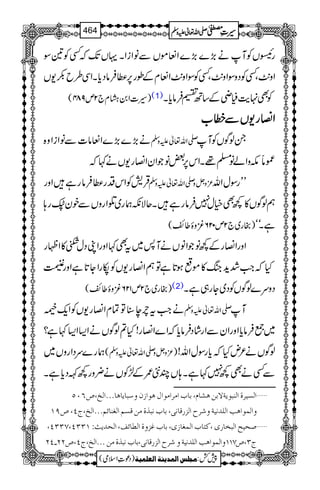 سیرتِ مصطفیٰ صلی اللہ تعالیٰ علیہ وسلم 464
رئیسوں کو آپ نے بڑے بڑے انعاموں سے نوازا۔ یہاں تک کہ کسی کو تین سو
اونٹ، کسی کو دو سو اونٹ، کسی کو سو اونٹ انعام کے طور پر عطا فرما دیا۔ اسی طرح بکریوں
کو بھی نہایت فیاضی کے ساتھ تقسیم فرمایا۔(1) (سیرت ابن ہشام ج۲ ص۴۸۹)
انصاریوں سے خطاب
جن لوگوں کو آپ صلی اللہ تعالیٰ علیہ وسلم نے بڑے بڑے انعامات سے نوازا وہ
عموماً مکہ والے نو مسلم تھے۔ اس پر بعض نوجوان انصاریوں نے کہا کہ
’’رسول اللہ عزوجل و صلی اللہ تعالیٰ علیہ وسلم قریش کو اس قدر عطا فرما رہے ہیں اور
ہم لوگوں کا کچھ بھی خیال نہیں فرما رہے ہیں۔ حالانکہ ہماری تلواروں سے خون ٹپک رہا
ہے۔‘‘ (بخاری ج۲ ص۶۲۰ غزوۂ طائف)
اور انصار کے کچھ نوجوانوں نے آپس میں یہ بھی کہا اور اپنی دل شکنی کا اظہار
کیا کہ جب شدید جنگ کا موقع ہوتا ہے تو ہم انصاریوں کو پکارا جاتا ہے اور غنیمت
دوسرے لوگوں کو دی جا رہی ہے۔(2) (بخاری ج۲ ص۶۲۱ غزوۂ طائف)
آپ صلی اللہ تعالیٰ علیہ وسلم نے جب یہ چرچا سنا تو تمام انصاریوں کو ایک خیمہ
میں جمع فرمایا اور ان سے ارشاد فرمایا کہ اے انصار! کیا تم لوگوں نے ایسا ایسا کہا ہے؟
لوگوں نے عرض کیا کہ یا رسول اللہ! (عزوجل و صلی اللہ تعالیٰ علیہ وسلم) ہمارے سرداروں میں
سے کسی نے بھی کچھ نہیں کہا ہے۔ ہاں چند نئی عمر کے لڑکوں نے ضرور کچھ کہہ دیا ہے۔
السیرة النبویة لابن ھشام، باب امر اموال ھوازن و سبایاھا...الخ، ص ۵۰۶
والمواھب اللدنیة وشرح الزرقانی، باب نبذة من قسم الغنائم...الخ، ج۴، ص۱۹
صحیح البخاری، کتاب المغازی، باب غزوة الطائف، الحدیث: ۴۳۳۱، ۴۳۳۷،
ج۳، ص۱۱۷ والمواھب اللدنیة و شرح الزرقانی، باب نبذة من ...الخ، ج۴، ص۲۲-۲۴
پیش کش: مجلس المدینة العلمیة (دعوتِ اسلامی)